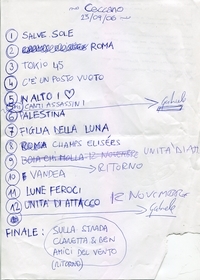 Ceccano
23/09/06
1 SALVE SOLE
2 ROMA
3 TOKIO 45
4 C'E' UN POSTO VUOTO
5 IN ALTO I ♡
CANTI ASSASSINI Gabriele
6 PALESTINA
7 FIGLIA DELLA LUNA
8 ROMA CHAMPS ELISÉRS
9 BOIA CHI MOLLA 12 NOVEMBRE UNITÀ DI ATT
10 VANDEA RITORNO
11 LUNE FEROCI
12 UNITÀ DI ATTACCO 12 NOVEMBRE
Gabriele
FINALE: SULLA STRADA
CLARETTA & BEN
AMICI DEL VENTO
(RITORNO)